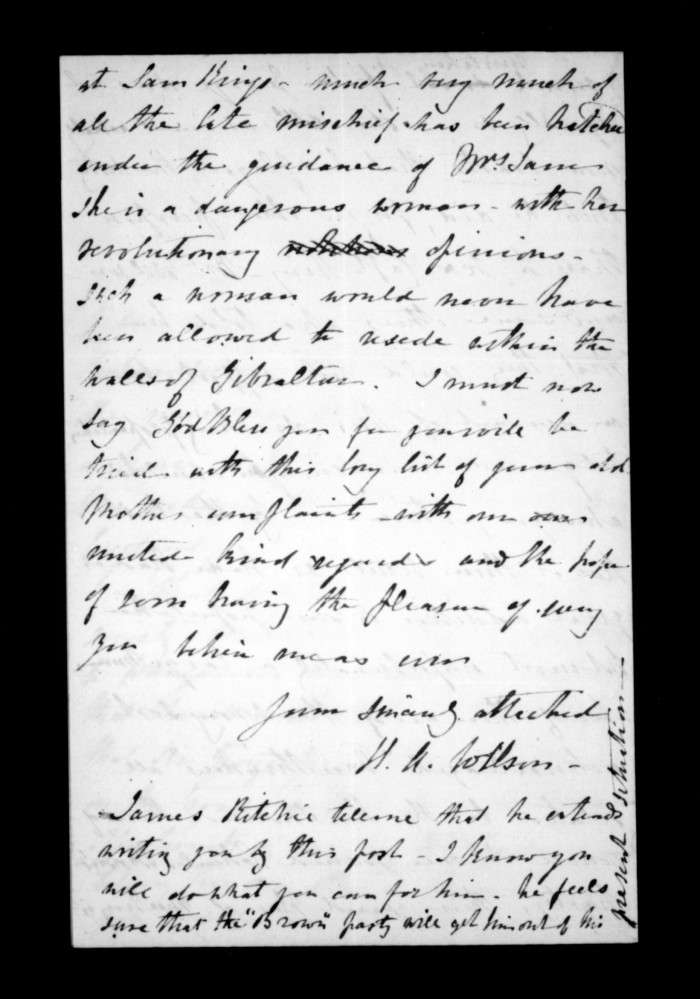 at Sam Kings - much very much of
all the late mischief has been hatched
under the guidance of Mrs Sam
she is a dangerous woman - with her
revolutionary opinions -
such a woman would never have
been allowed to reside within the
walls of Gibraltar. I must now
say God Bless you for you will be
tried with this long list of your old
Mothers complaints - with our
united kind regards and the hope
of soon having the pleasure of seeing
you believe me as ever
Your sincerely attached
H. A. Wilson -
James Ritchie tells me that he intends
writing you by this post - I know you
will do what you can for him - he feels
sure that the "Brown" party will get him out of his
present situation -